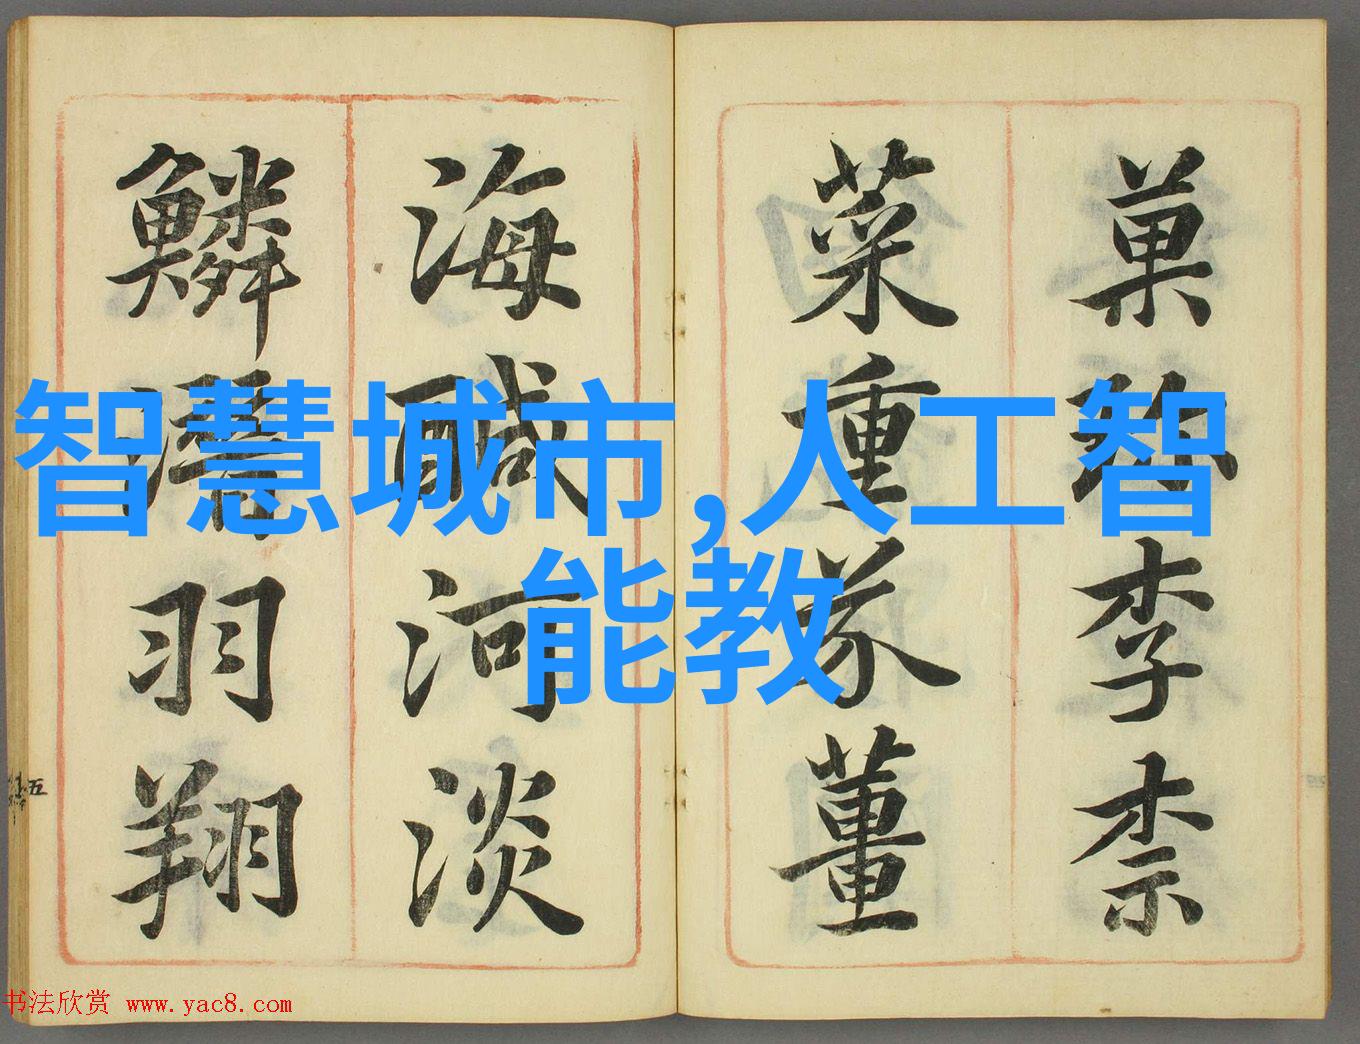 菓珎李柰
菜重芥薑
海醎河淡
鱗潛羽翔
五
智慧城市,人工智
能教
书法欣赏 www.yac8.com